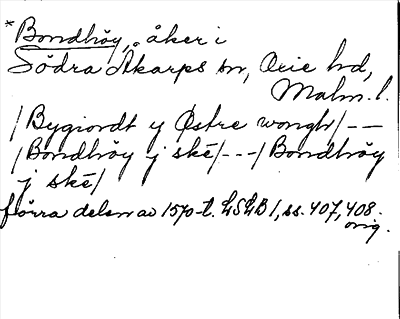 *Bondhöy, åker i
Södra Åkarps sn, Oxie hd,
Malm. l.
/Bygiordt y Østre wongh/ – –
/Bondhöy j ské/ - - -/ Bondhöy
j ské/
förra delen av 1570-t. LSLB 1, ss. 407, 408.
orig.